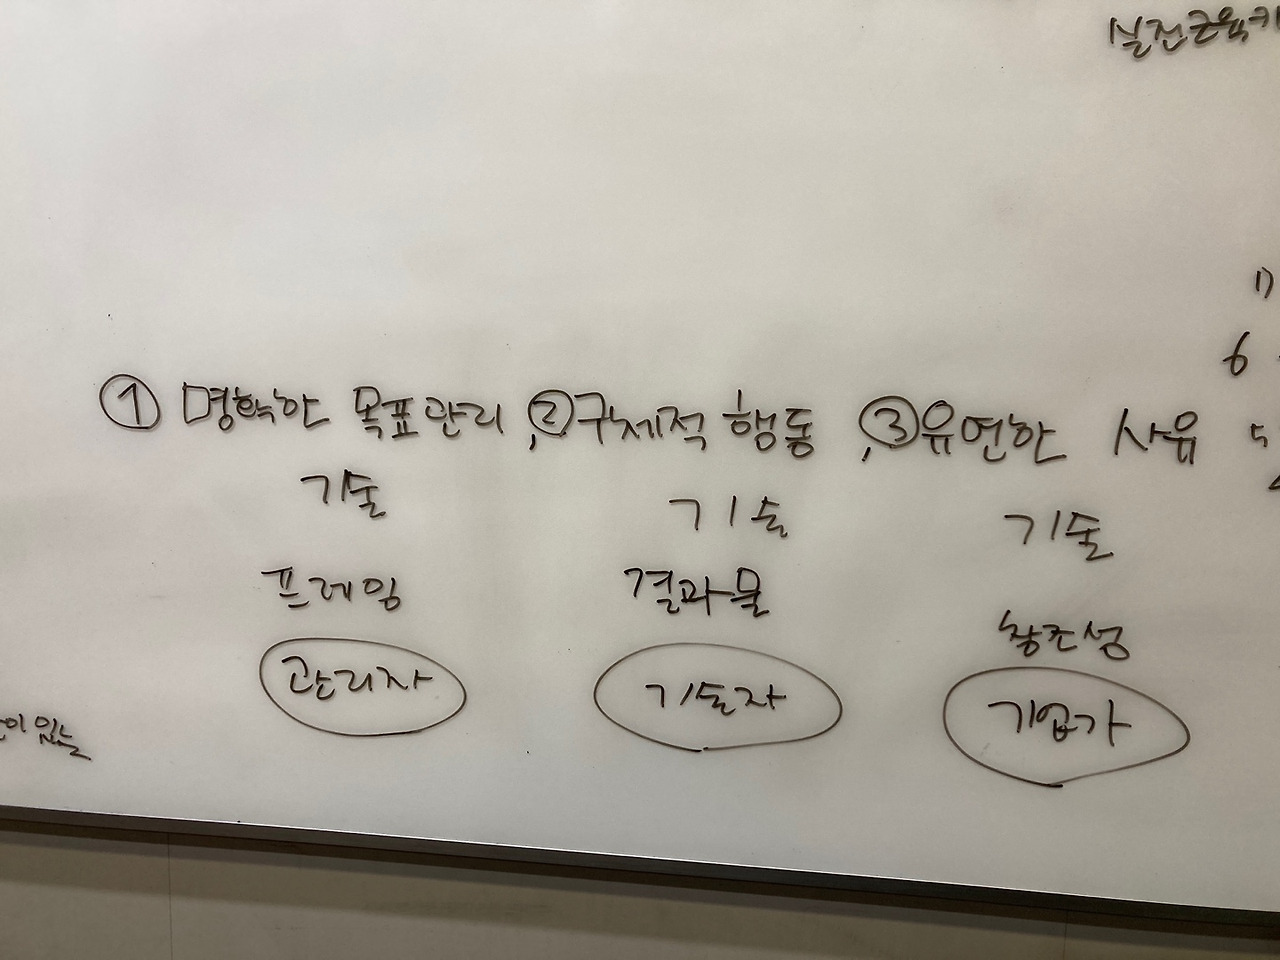 실전근육키
1)
6
① 명확한 목표관리, ② 구체적 행동, ③ 유연한 사유
5
기술 기술 기술
프레임 결과물 창조성
관리자 기술자 기업가
이 있는